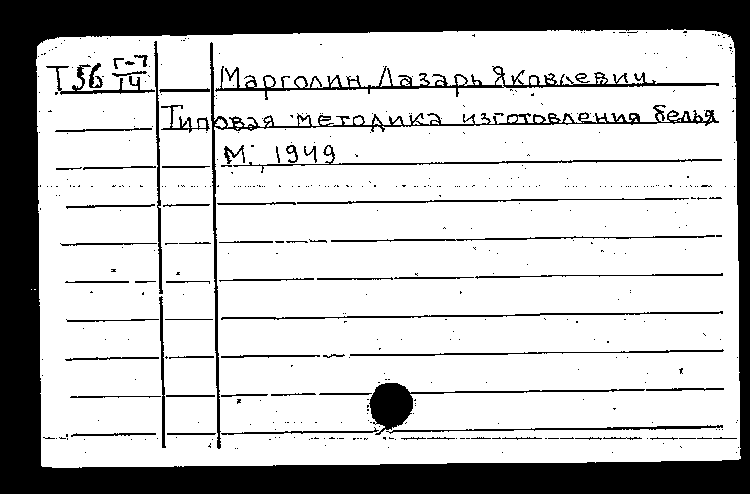 Т 56 Г-7/14 Марголин, Лазарь Яковлевич.
Типовая методика изготовления белья
М., 1949.